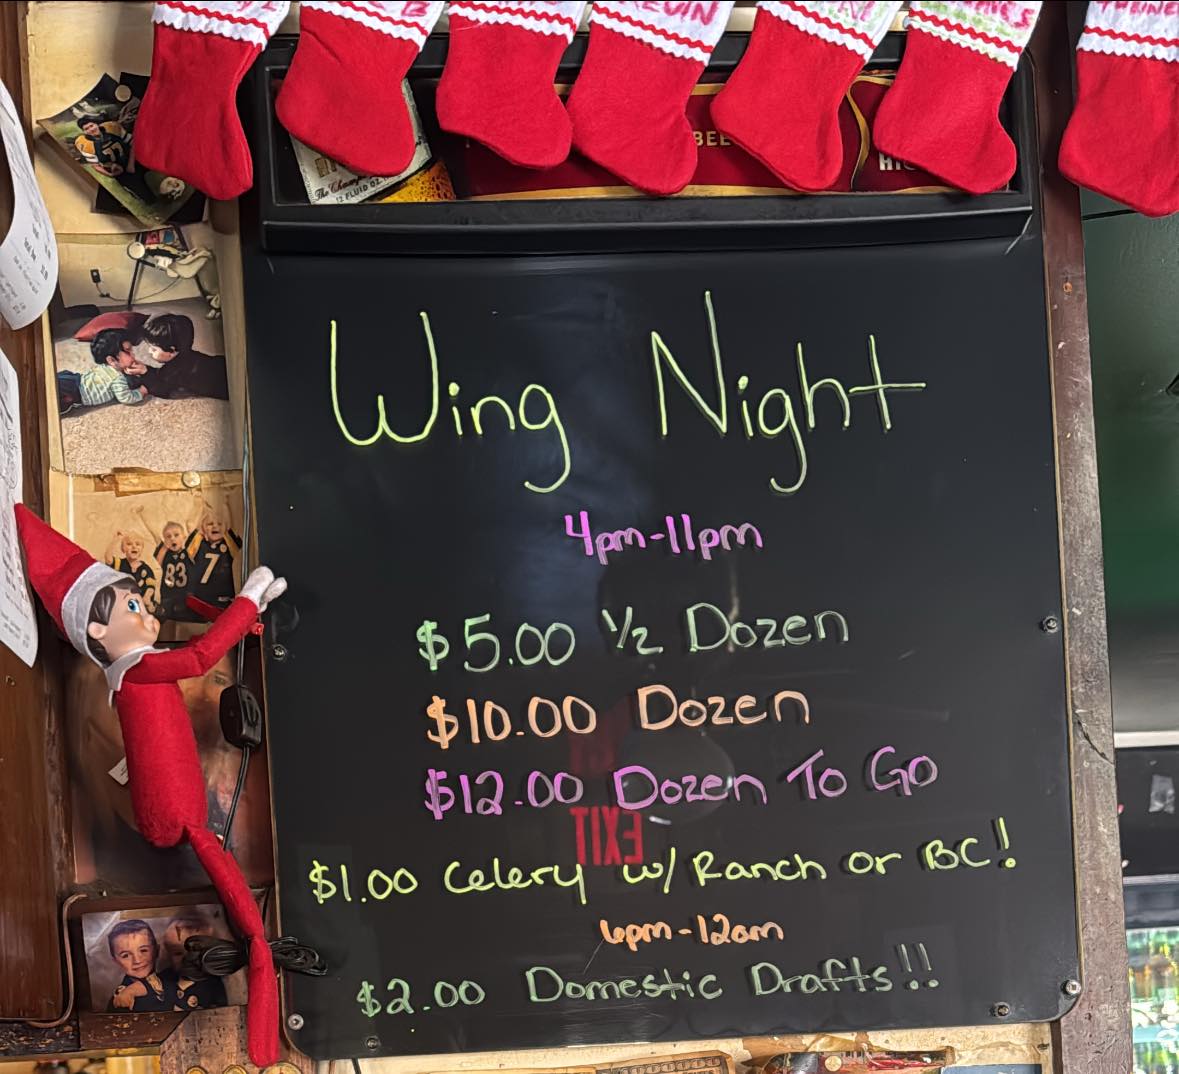 KEVIN
BEE
HIG
The Champ
12 FLUID OZ
Wing Night
4pm-11pm
83
7
$5.00 1/2 Dozen
$10.00 Dozen
$12.00 Dozen To Go
EXIT
$1.00 Celery w/ Ranch or BC!
6pm-12am
$2.00 Domestic Drafts!!